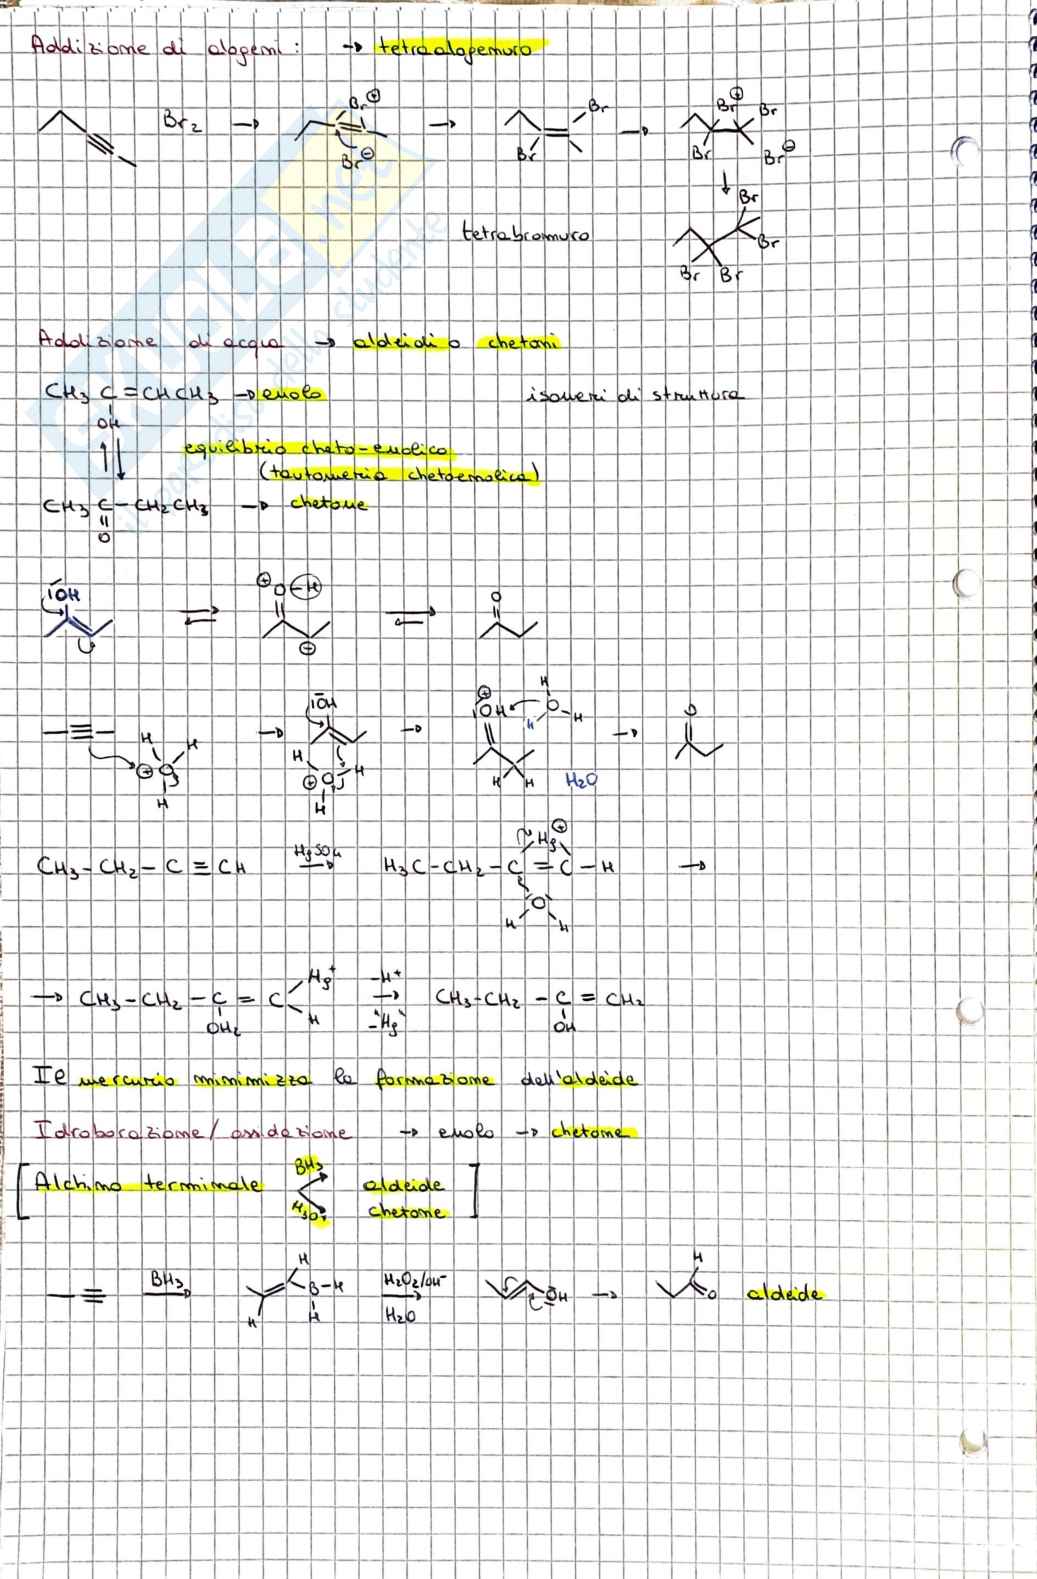 Addizione di alogeni: → tetraalogenuro
Br₂ → Br⊕ Br⊖ → Br Br → Br⊕ Br Br Br⊖
↓
Br
tetrabromuro Br
Br Br
Addizione di acqua → aldeidi o chetoni
CH₃ C = CH CH₃ → enolo isomeri di struttura
OH
equilibrio cheto-enolico
(tautomeria chetoenolica)
CH₃ C – CH₂ CH₃ → chetone
O
IOH ⇌ ⊕O–H ⊖ ⇌ O
H H ⊕O H → IOH H ⊕O H H → ⊕ IOH H O H H H H H₂O → O
CH₃–CH₂–C≡CH HgSO₄ → H₃C–CH₂–C=C–H Hg⊕ O H H →
→ CH₃–CH₂–C=C Hg⁺ H OH₂ –H⁺ → –"Hg" CH₃–CH₂–C=CH₂ OH
Il mercurio minimizza la formazione dell'aldeide
Idroborazione/ossidazione → enolo → chetone
[Alchino terminale BH₃ aldeide
HgSO₄ chetone]
BH₃ → H B–H H H H₂O₂/OH⁻ → H₂O OH → H O aldeide